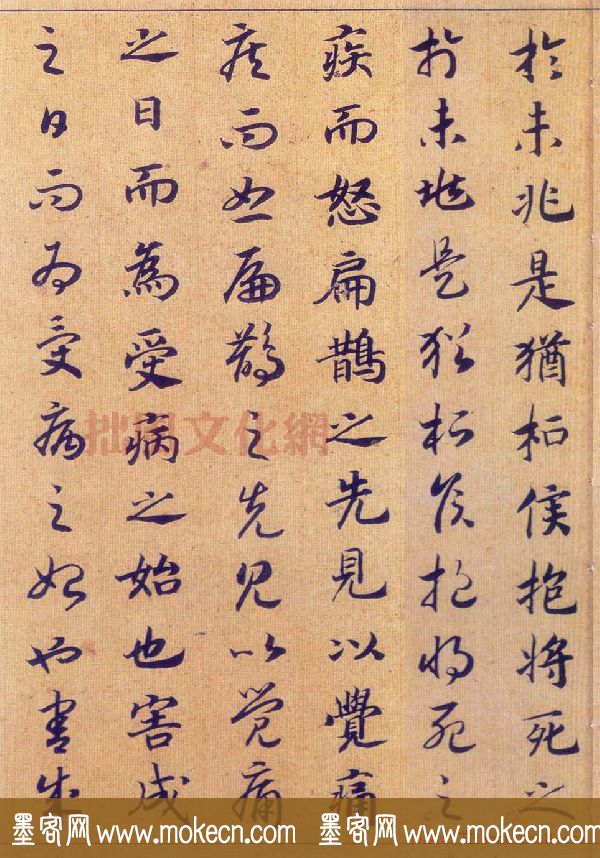 於未兆是猶桓侯抱將死之
於未兆是犹桓侯抱将死之
疾而怒扁鵲之先見以覺痛
疾而怒扁鹊之先见以觉痛
之日而為受病之始也害成
之日而为受病之始也害成
拙風文化網
墨客网 www.mokecn.com 墨客网 www.mokecn.com